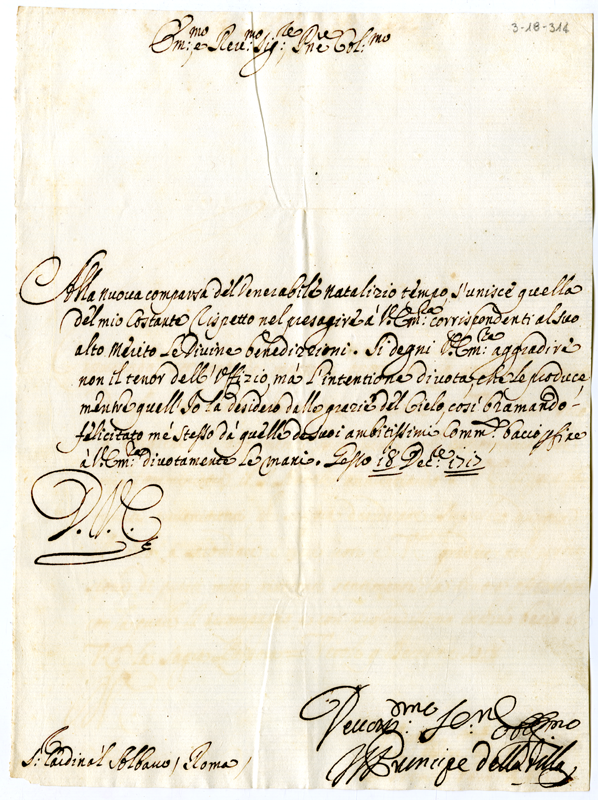 3-18-314
Em:mo e Reu:mo Sig:re Pne Col:mo
Alla nuova comparsa del Venerabile natalizio tempo, s'unisce quella
del mio Costante Rispetto nel presagire à V: Em:za corrispondenti al suo
alto Merito Le Divine benedizzioni. Si degni V: Em:za aggradire
non il tenor dell'Uffizio, mà l'intentione divota, che le produce
mentre quell'Io la desidero dalle grazie del Cielo, così bramando
felicitato mè stesso dà quelle de suoi ambitissimi Comm:di bacio
à V: Em:za divotamente Le mani. 18 Dec:re 1717
D. V. E.
Deuot:mo Ser:re Obl:mo
Il Principe della
S: Cardinal Albano / Roma /